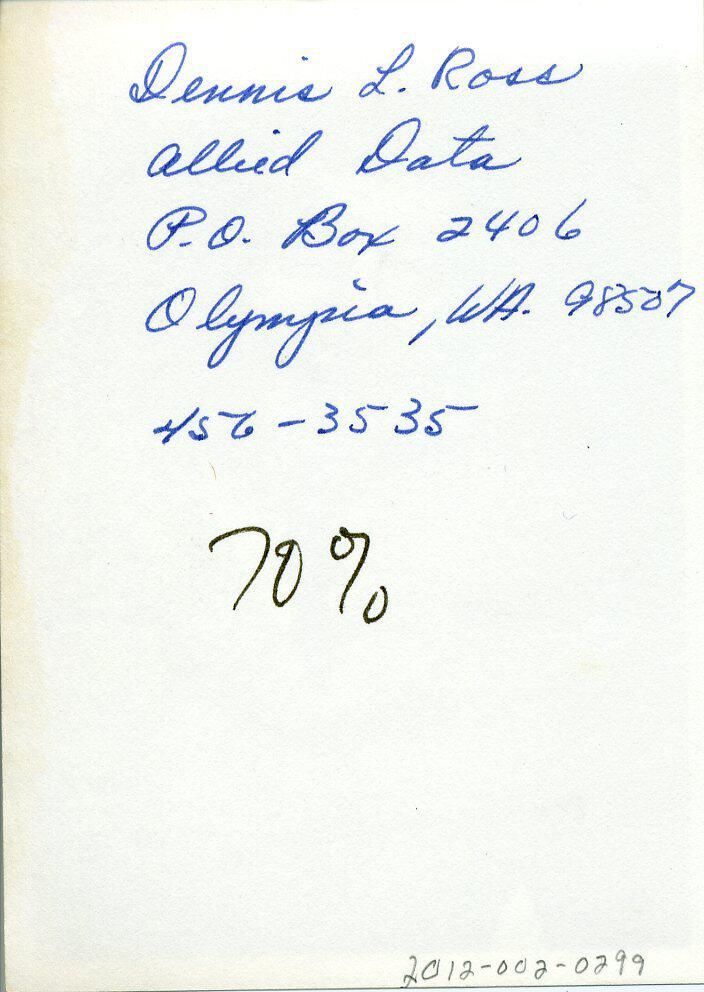 Dennis L. Ross
Allied Data
P.O. Box 2406
Olympia, WA. 98507
456-3535
70%
2012-002-0299